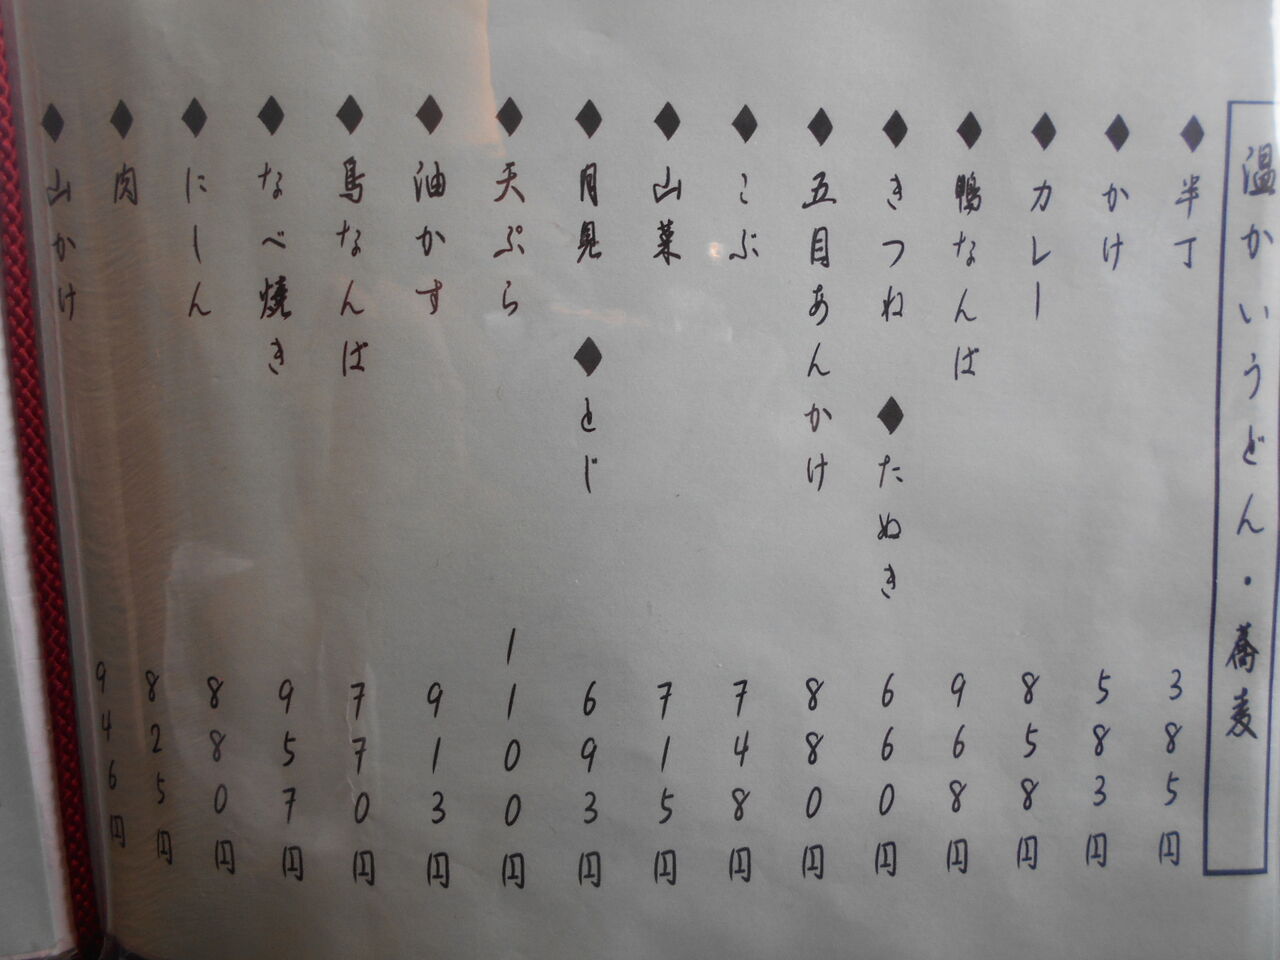 温かいうどん・蕎麦
◆半丁 385円
◆かけ 583円
◆カレー 858円
◆鴨なんば 968円
◆きつね ◆たぬき 660円
◆五目あんかけ 880円
◆こぶ 748円
◆山菜 715円
◆月見 ◆とじ 693円
◆天ぷら 1100円
◆油かす 913円
◆鳥なんば 770円
◆なべ焼き 957円
◆にしん 880円
◆肉 825円
◆山かけ 946円